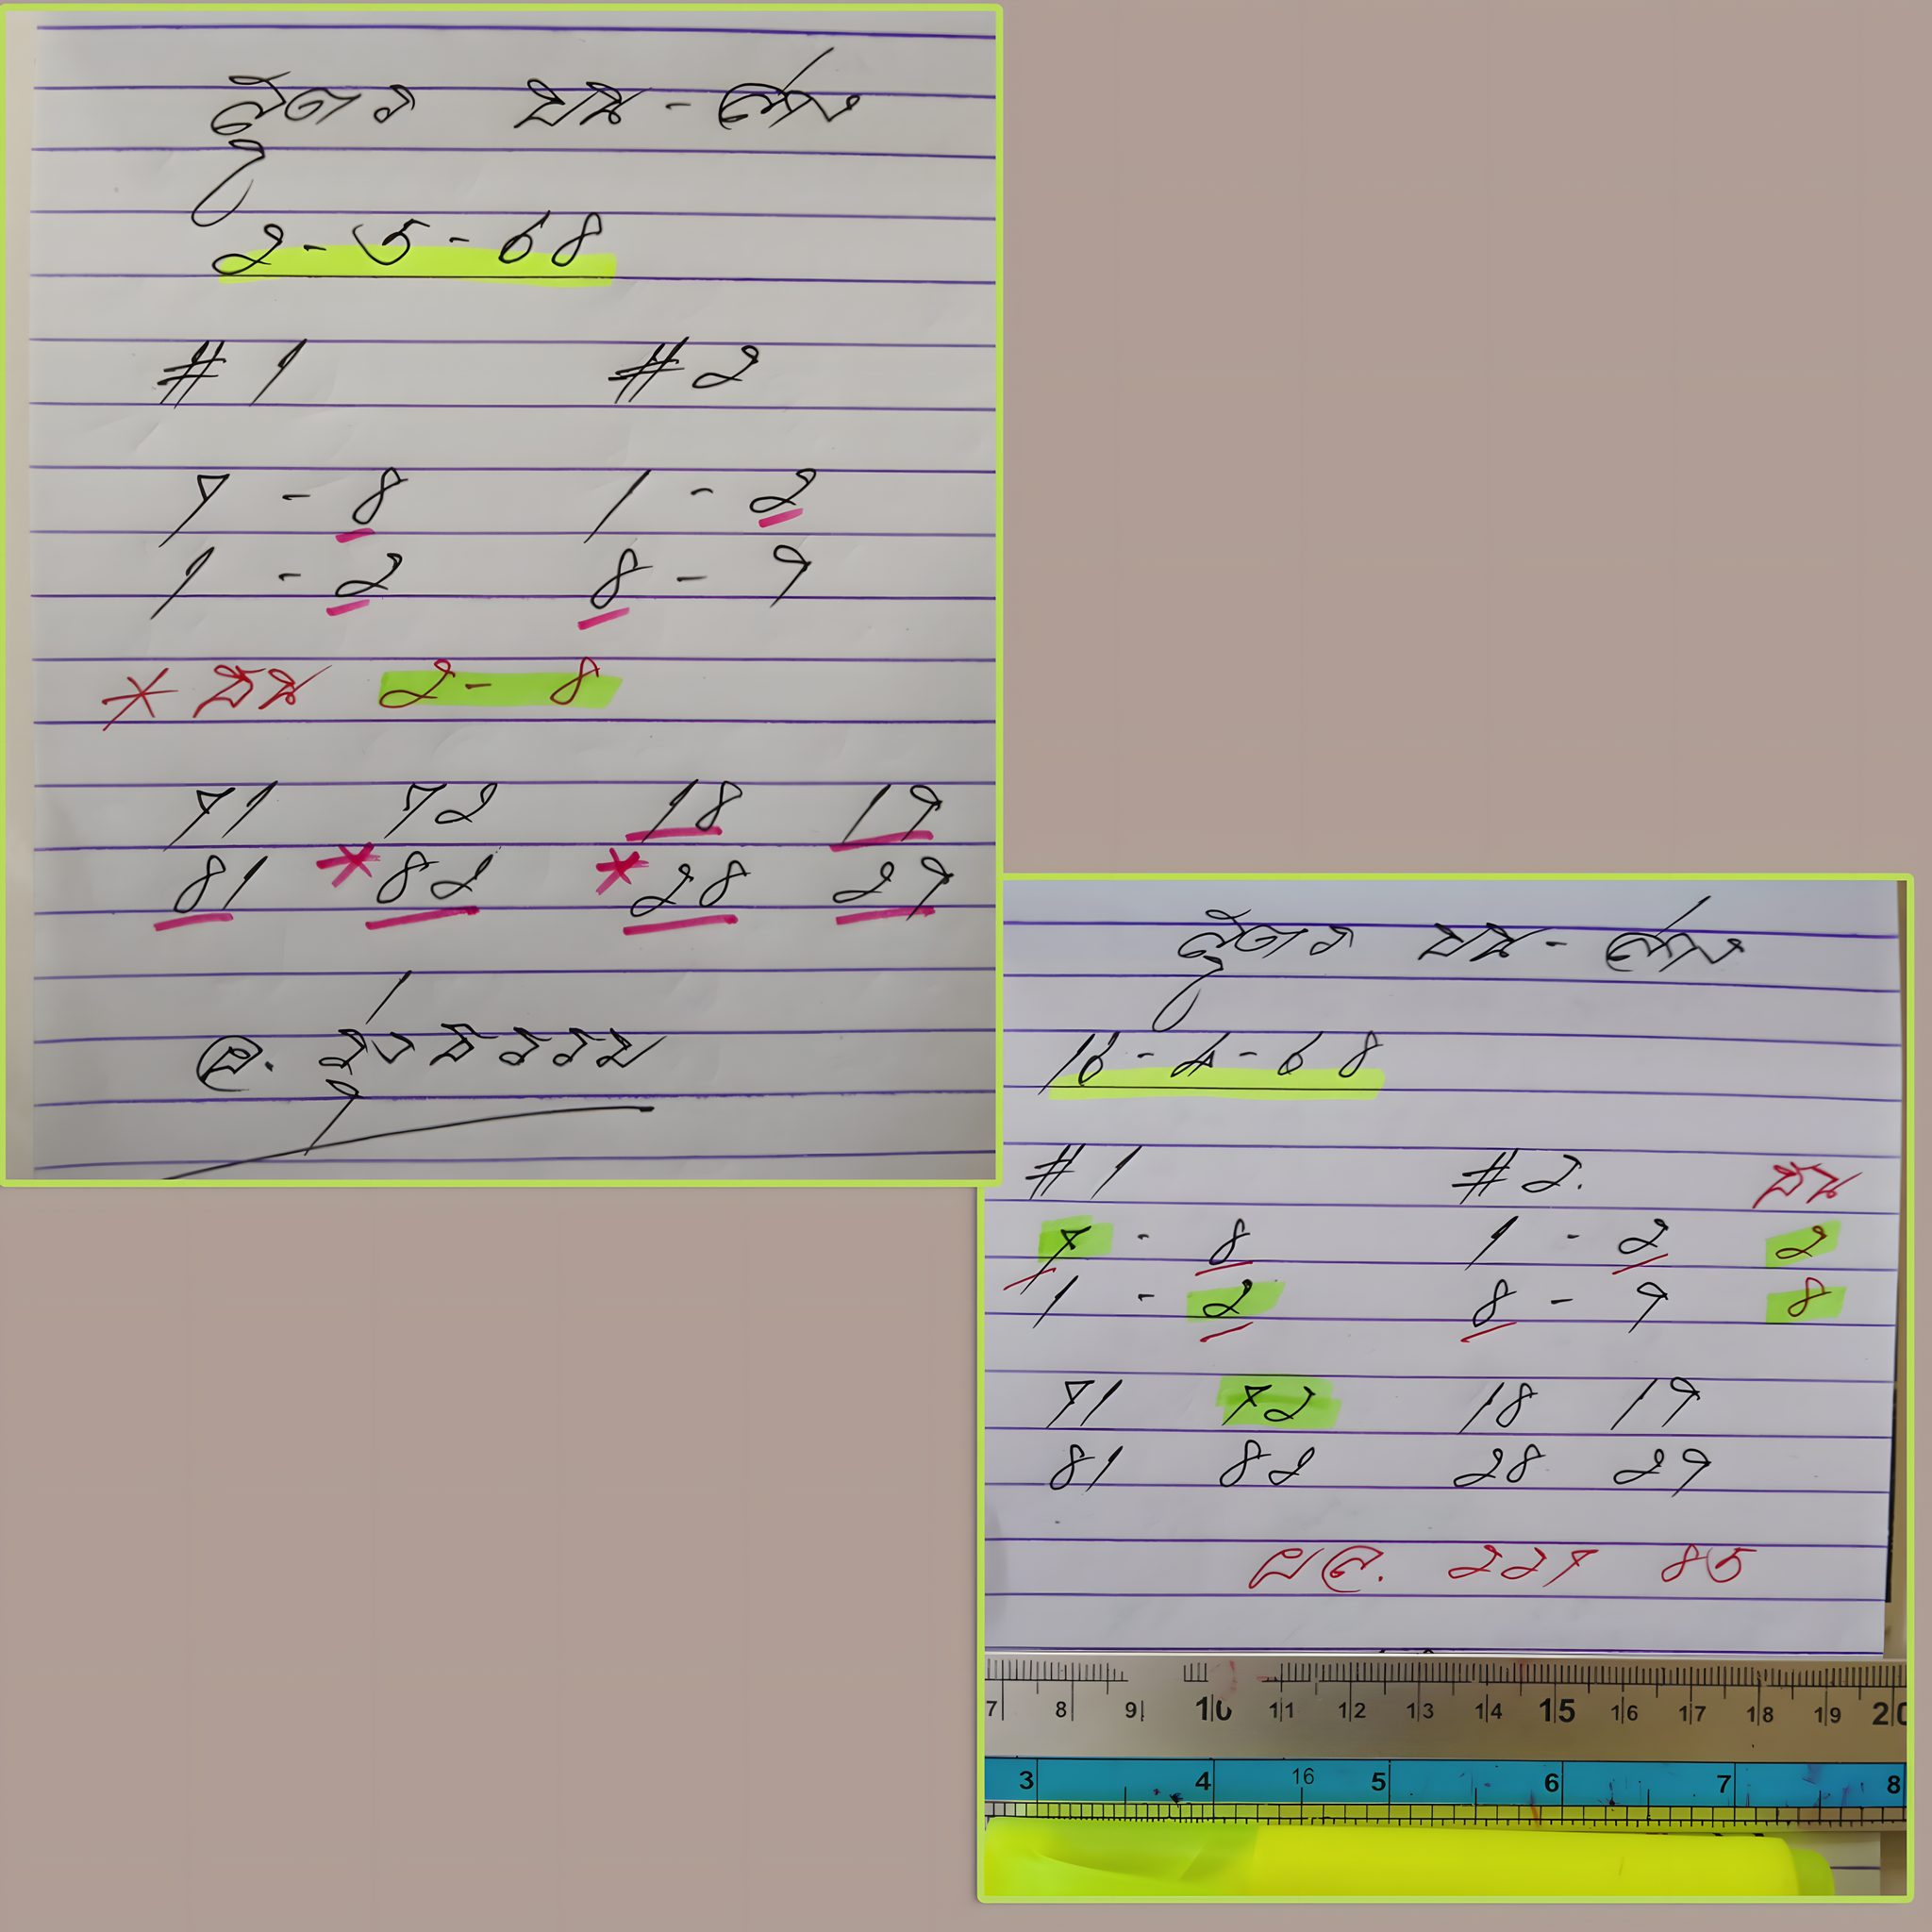 สูตร บน - ล่าง
2 - 5 - 68
#1 #2
7 - 8 1 - 2
1 - 2 8 - 9
* ชน 2 - 8
71 72 18 19
81 *82 *28 29
อ. รุ่งธรรม
สูตร บน - ล่าง
16 - 4 - 68
#1 #2. ชน
7 - 8 1 - 2 2
1 - 2 8 - 9 8
71 72 18 19
81 82 28 29
ผล. 227 85
7 8 9 10 11 12 13 14 15 16 17 18 19 20
3 4 16 5 6 7 8